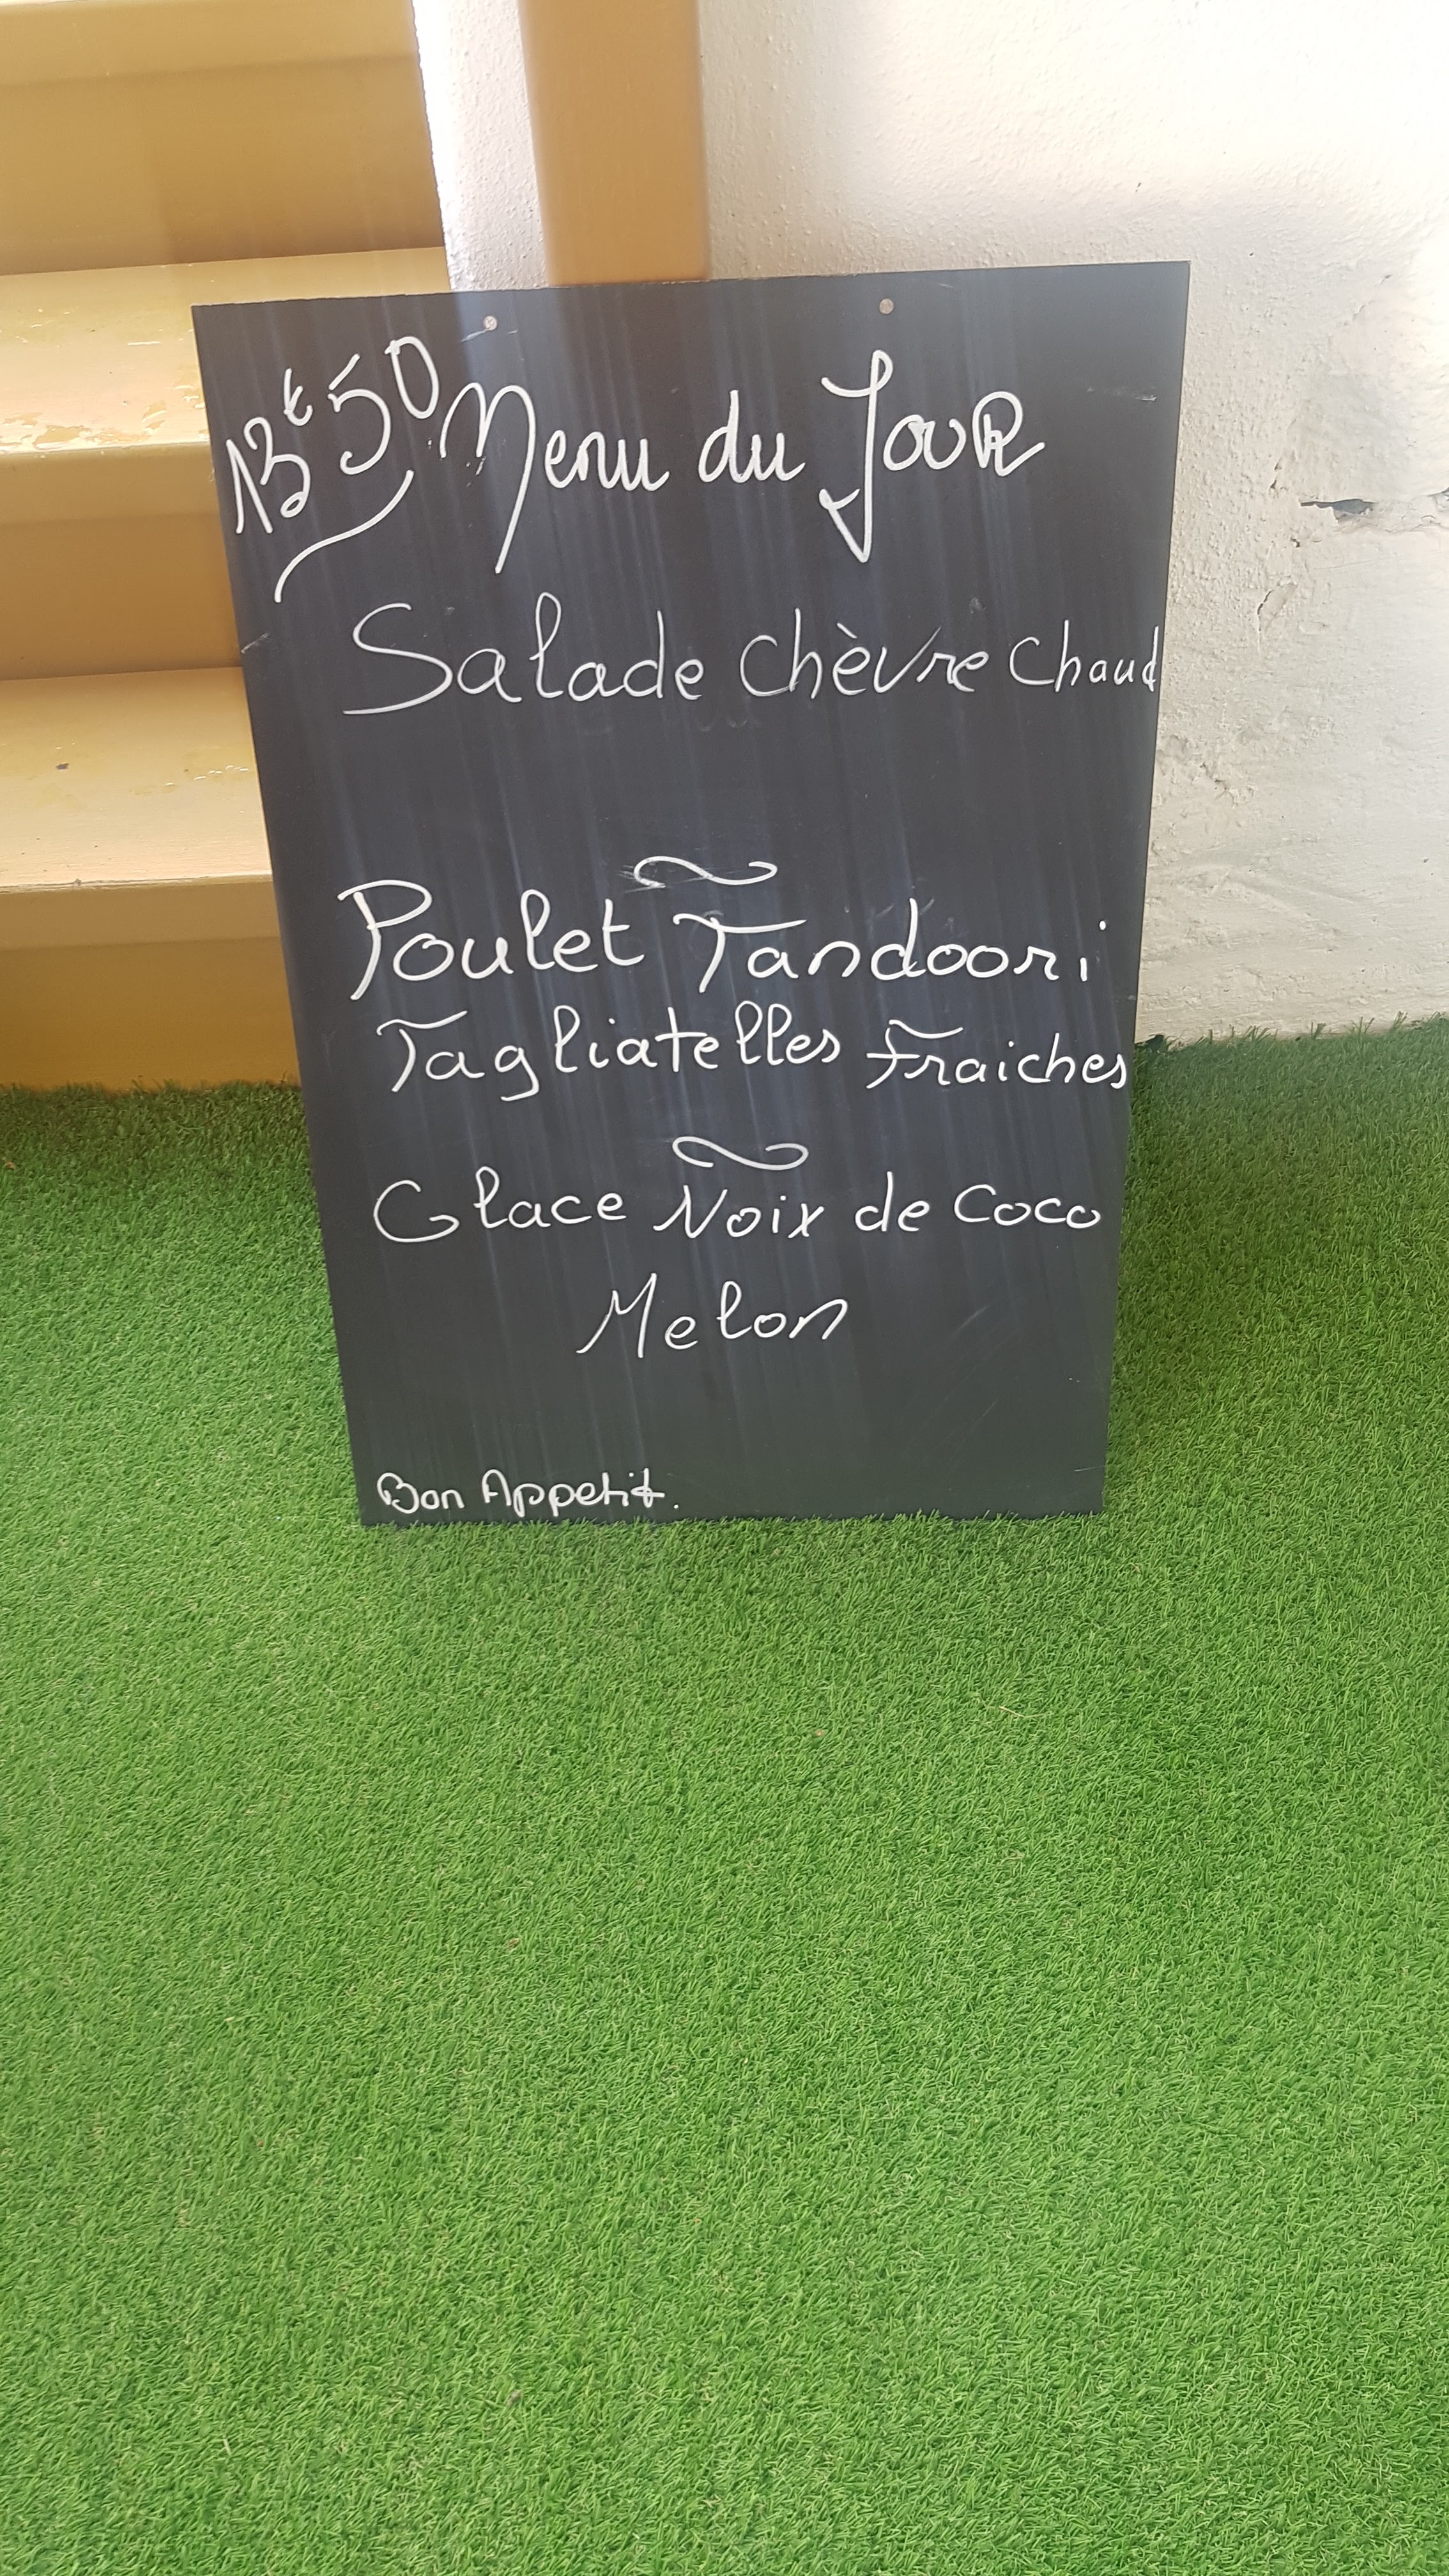 13€50 Menu du JouR
Salade Chèvre Chaud
Poulet Tandoori
Tagliatelles Fraiches
Glace Noix de Coco
Melon
Bon Appetit.